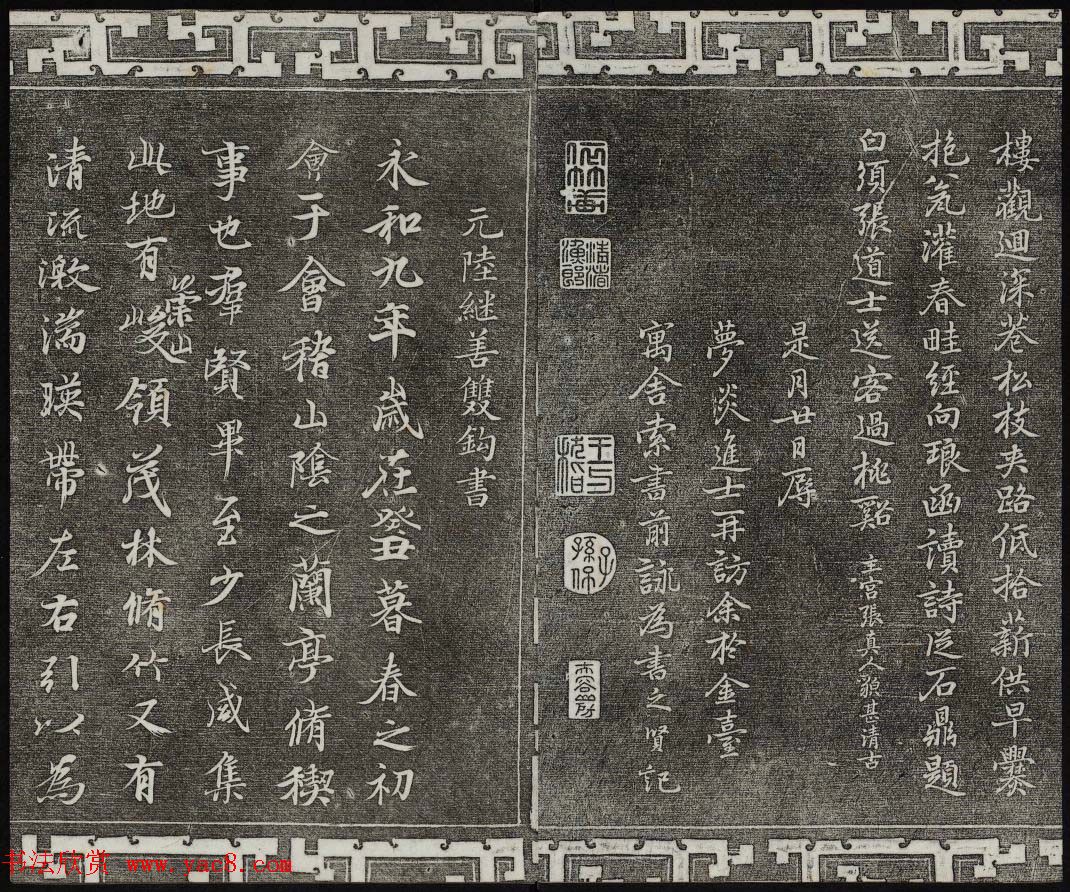 樓觀迴深巷松枝夹路低拾薪供早爨
抱瓮灌春畦經向琅函讀詩從石鼎題
白須張道士送客過桃谿 主宮張真人貌甚清古
是月廿日辱
夢淡進士再訪余於金臺
寓舍索書前詠為書之 賢記
孫
元陸継善雙鈎書
永和九年歲在癸丑暮春之初
會于會稽山陰之蘭亭脩稧
事也羣賢畢至少長咸集
此地有崇山峻領茂林脩竹又有
清流激湍暎帶左右引以為
书法欣赏 www.yac8.com